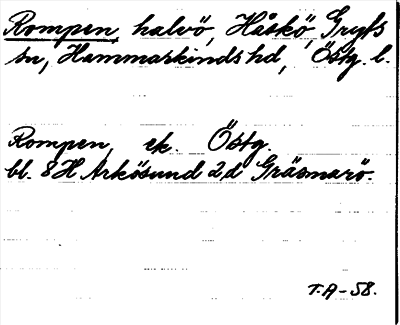 Rompen, halvö, Håskö, Gryts
sn, Hammarkinds hd, Östg. l.
Rompen, ek. Östg.
bl. 8H Arkösund 2d Gräsmarö.
T.A-58.